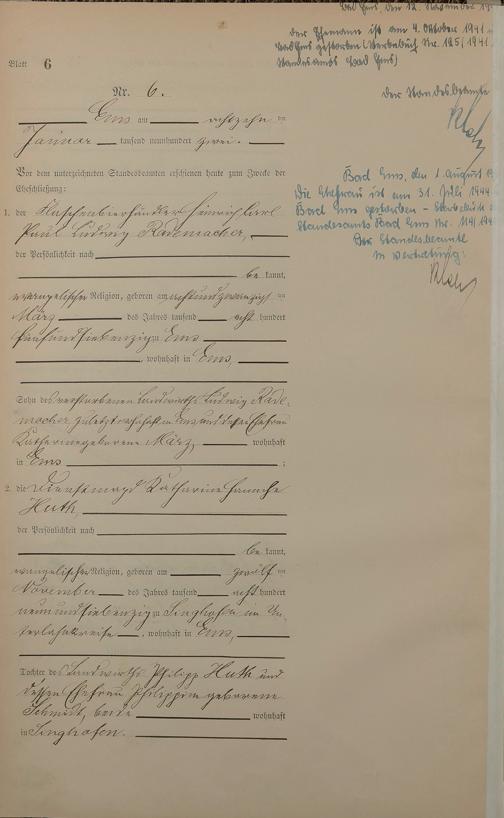 Bad Ems, den 12. November 19
der Ehemann ist am 4. Oktober 1941 in
Bad Ems gestorben (Sterbebuch Nr. 125/1941
Standesamts Bad Ems)
Der Standesbeamte
Blatt 6
Nr. 6.
Ems am achtzehn ten
Januar tausend neunhundert zwei.
Vor dem unterzeichneten Standesbeamten erschienen heute zum Zwecke der
Eheschließung:
1. der Flaschenbierhändler Heinrich Carl
Paul Ludwig Rademacher,
der Persönlichkeit nach
be kannt,
evangelischer Religion, geboren am achtundzwanzig ten
März des Jahres tausend acht hundert
fünfundsiebenzig zu Ems
, wohnhaft in Ems,
Sohn des verstorbenen Landwirths Ludwig Rade-
macher zuletzt wohnhaft in Ems und dessen Ehefrau
Katharina geborene März, wohnhaft
in Ems ;
2. die Dienstmagd Katharine
Huth,
der Persönlichkeit nach
be kannt,
evangelischer Religion, geboren am zwölf ten
November des Jahres tausend acht hundert
neunundsiebenzig zu Singhofen im Un-
terlahnkreise, wohnhaft in Ems,
Tochter des Landwirths Philipp Huth und
dessen Ehefrau Philippine geborene
Schmidt, beide wohnhaft
in Singhofen.
Bad Ems, den 1. August 19
Die Ehefrau ist am 31. Juli 1944
Bad Ems gestorben - Sterbebuch
Standesamts Bad Ems Nr. 114/194
Der Standesbeamte
In Vertretung: